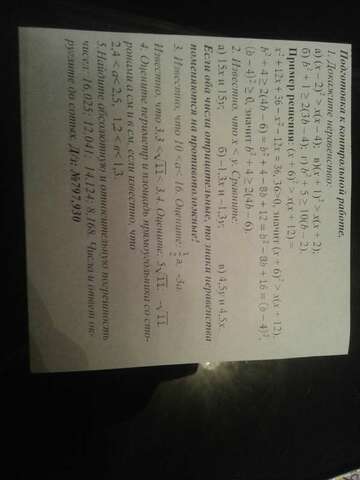 Подготовка к контрольной работе.
1. Докажите неравенство:
а) (x − 2)² > x(x − 4); в)(x + 1)² > x(x + 2);
б) b² + 1 ≥ 2(3b − 4); г) b² + 5 ≥ 10(b − 2).
Пример решения: (x + 6)² > x(x + 12) =
x² + 12x + 36 − x² − 12x = 36, 36>0, значит (x + 6)² > x(x + 12).
b² + 4 ≥ 2(4b − 6) = b² + 4 − 8b + 12 = b² − 8b + 16 = (b − 4)²,
(b − 4)² ≥ 0, значит b² + 4 ≥ 2(4b − 6).
2. Известно, что x < y. Сравните:
а) 15x и 15y; б) −1,3x и −1,3y; в) 4,5y и 4,5x.
Если оба числа отрицательные, то знаки неравенства
поменяются на противоположные!
3. Известно, что 10 < a< 16. Оцените: a, −3a.
Известно, что 3,3 < √11 < 3,4. Оцените: 5√11, −√11.
4. Оцените периметр и площадь прямоугольника со сто-
ронами а см и в см, если известно, что
2,4 < a< 2,5, 1,2 < в< 1,3.
5.Найдите абсолютную и относительную погрешность
чисел: 16,025; 12,041; 14,124; 8,168. Числа и ответ ок-
руглите до сотых. Д/з: №797,930